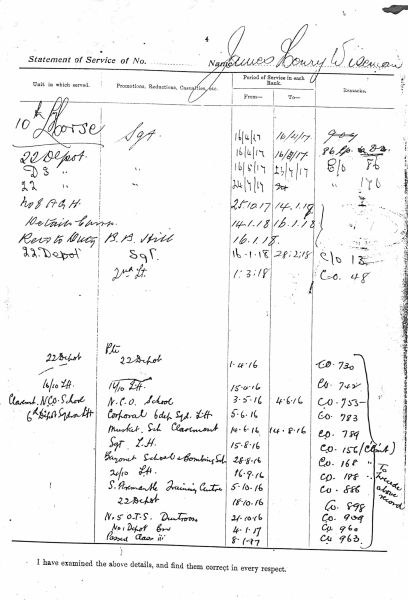 4
Statement of Service of No. Name James Henry Wiseman
Unit in which served. Promotions, Reductions, Casualties, etc. Period of Service in each Rank. Remarks.
From— To—
10th Horse Sgt. 16/4/17 16/4/17
22 Depot 16/4/17 16/5/17 86
D3 " 16/5/17 23/7/17 C/o 86
22 " 24/7/17 " 170
No 8 A.G.H 25.10.17 14.1.18
Details Camp 14.1.18 16.1.18
Retn to Duty B.B. Hill 16.1.18
22 Depot Sgt 16.1.18 28.2.18 C/o 13
2nd Lt. 1.3.18 C.O. 48
Pte
22 Depot 22 Depot 1.4.16 CO. 730
16/10 LH. 16/10 LH. 15.4.16 Co. 742
Claremt. N.C.O. School N.C.O. School 3.5.16 4.6.16 CO. 753
6th Depot Sqdn LH Corporal 6 dep Sqd. LH 5.6.16 CO. 783
Musket. Sch Claremont 10.6.16 14.8.16 CO. 789
Sgt L.H. 15.8.16 CO. 156
Bayonet School & Bombing Sch 28.8.16 Co. 168
20/10 LH. 16.9.16 CO. 188
Training Centre 5.10.16 CO. 886
22 Depot 18.10.16 Co. 898
N. 5 O.T.S. Duntroon 21.10.16 CO. 909
No. 1 Depot 4.1.17 Co 960
Passed Class iii 8.1.97 Co 963
To precede above record
I have examined the above details, and find them correct in every respect.